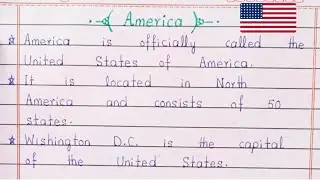 America
America is officially called the
United States of America.
It is located in North
America and consists of 50
states.
Wishington D.C. is the capital
of the United States.